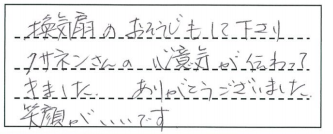 換気扇のおそうじもして下さり
クサネンさんの心意気が伝わって
きました。ありがとうございました。
笑顔がいいです